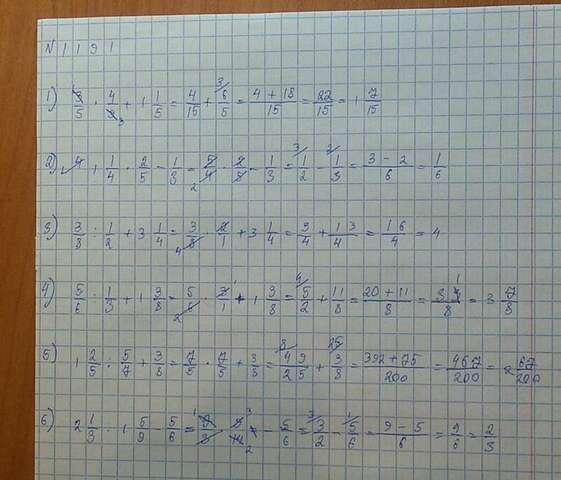 N 1191
1) 3/5 · 4/9 + 1 1/5 = 4/15 + 6/5 = (4 + 18)/15 = 22/15 = 1 7/15
2) 1 1/4 · 2/5 - 1/3 = 5/4 · 2/5 - 1/3 = 1/2 - 1/3 = (3 - 2)/6 = 1/6
3) 3/8 : 1/2 + 3 1/4 = 3/8 · 2/1 + 3 1/4 = 3/4 + 13/4 = 16/4 = 4
4) 5/6 : 1/3 + 1 3/8 = 5/6 · 3/1 + 1 3/8 = 5/2 + 11/8 = (20 + 11)/8 = 31/8 = 3 7/8
5) 1 2/5 : 5/7 + 3/8 = 7/5 · 7/5 + 3/8 = 49/25 + 3/8 = (392 + 75)/200 = 467/200 = 2 67/200
6) 2 1/3 : 1 5/9 - 5/6 = 7/3 · 9/14 - 5/6 = 3/2 - 5/6 = (9 - 5)/6 = = 2/3